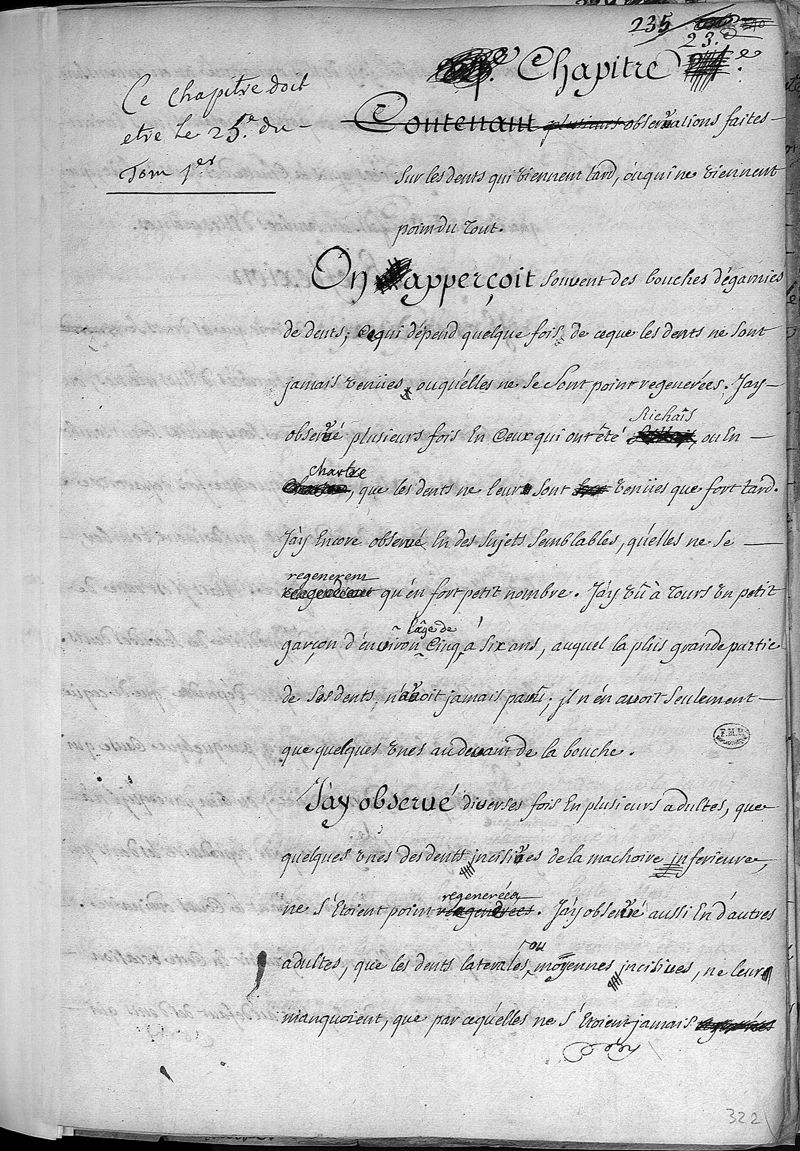 235
23.
Ce chapitre doit
etre le 25.e du
Tom 1.er
Chapitre
Contenant plusieurs observations faites
sur les dents qui viennent tard, ou qui ne viennent
point du tout.
On apperçoit souvent des bouches dégarnies
de dents; ce qui dépend quelque fois de ce que les dents ne sont
jamais venües, ou qu'elles ne se sont point regenerées. J'ay
observé plusieurs fois en ceux qui ont été
Richais
, ou en
chartre
, que les dents ne leur sont venües que fort tard.
J'ay encore observé en des sujets semblables, qu'elles ne se
regenerent
qu'en fort petit nombre. J'ay vû à Tours un petit
l'âge de
garçon d'environ cinq à six ans, auquel la plus grande partie
de ses dents, n'avoit jamais parû; jl n'en avoit seulement
que quelques vnes au devant de la bouche.
J'ay observé diverses fois en plusieurs adultes, que
quelques vnes des dents jncisives de la machoire jnferieure,
regenerées
ne s'étoient point reagendrées. J'ay observé aussi en d'autres
ou
adultes, que les dents laterales, moyennes jncisives, ne leur
manquoient, que par ce qu'elles ne s'étoient jamais
322